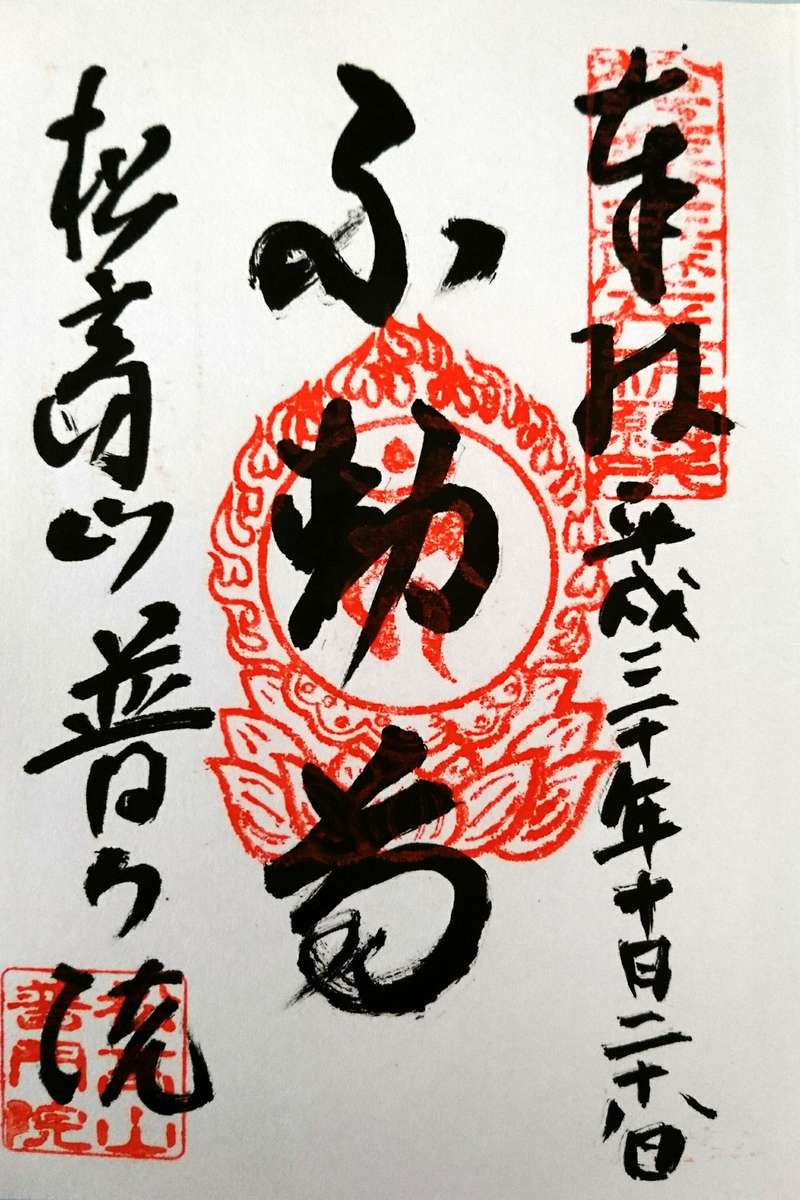 奉拝 平成三十年十月二十八日
不動尊
松高山 普門院
松高山
普門院